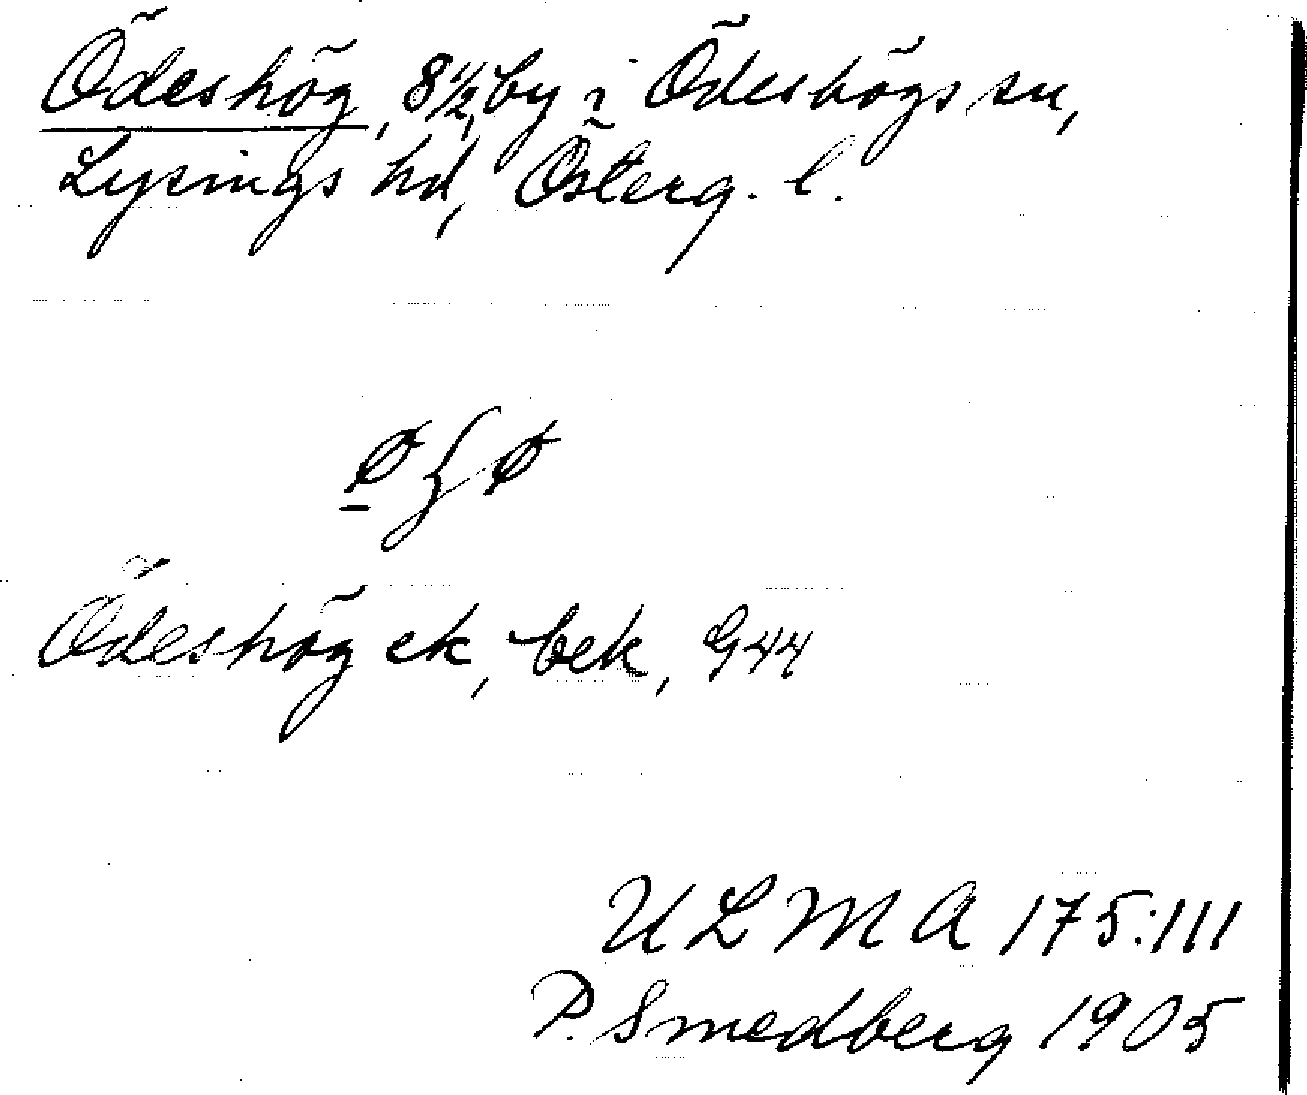 Ödeshög, 8 1/2, by i Ödeshögs sn,
Lysings hd, Österg. l.
Ödeshög ek, bek, G44
U L M A 175:111
P. Smedberg 1905